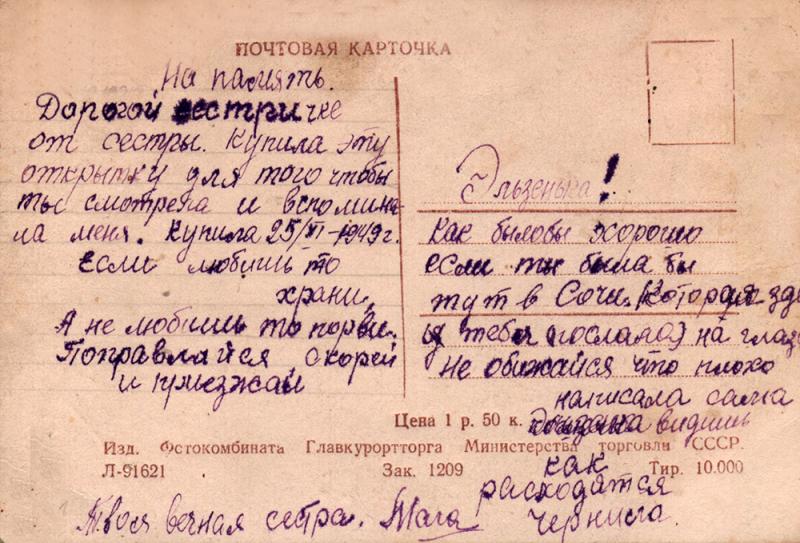 ПОЧТОВАЯ КАРТОЧКА
На память.
Дорогой сестричке
от сестры. Купила эту
открытку для того чтобы
ты смотрела и вспомина-
ла меня. Купила 25/VI-1949г.
Если любишь то
храни,
А не любишь то порви.
Поправляйся скорей
и приезжай
Эльзенька!
Как былобы хорошо
если ты была бы
тут в Сочи. Которая
я тебе послала) на
Не обижайся что плохо
написала сама
видишь
как
расходятся
чернила.
Цена 1 р. 50 к.
Изд. Фотокомбината Главкурортторга Министерства торговли СССР.
Л-91621 Зак. 1209 Тир. 10.000
Твоя вечная сестра. Мага